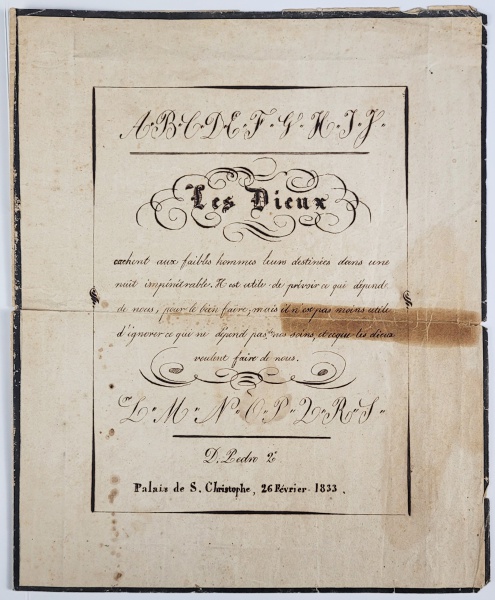 A·B·C·D·E·F·G·H·I·J·
Les Dieux
cachent aux faibles hommes leurs destinées dans une
nuit impénétrable. Il est utile de prévoir ce qui dépend
de nous, pour le bien faire; mais il n'est pas moins utile
d'ignorer ce qui ne dépend pas nos soins, et que les dieux
veulent faire de nous.
L·M·N·O·P·Q·R·S·
D. Pedro 2º
Palais de S. Christophe, 26 Février 1833.